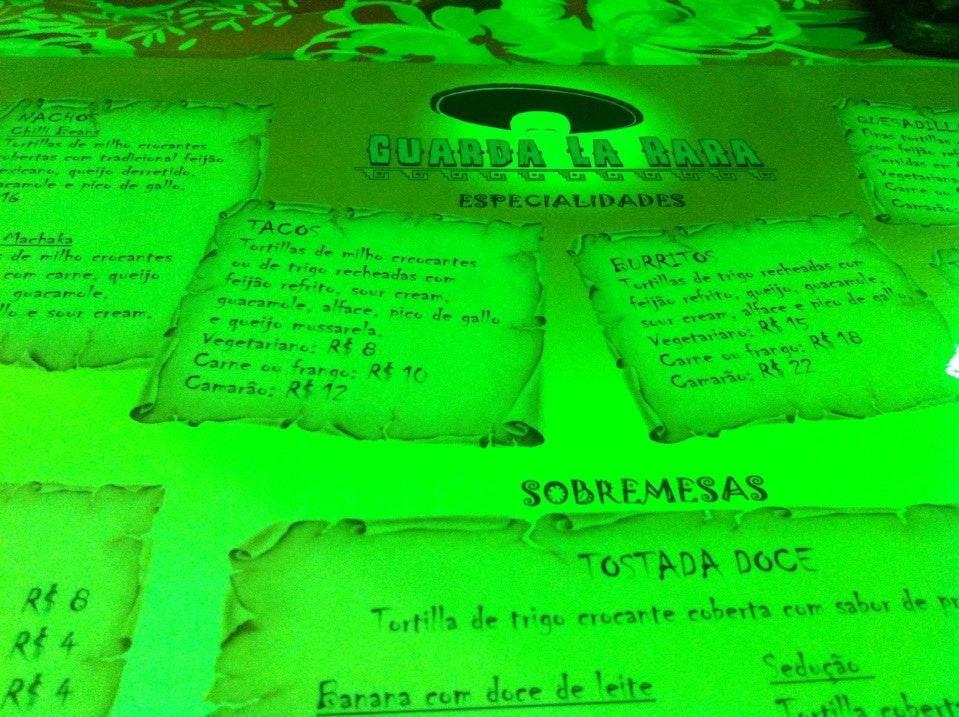 GUARDA LA RARA
ESPECIALIDADES
NACHOS
Chilli Beans
Tortillas de milho crocantes
cobertas com tradicional feijão
mexicano, queijo derretido,
guacamole e pico de gallo.
16
Machaka
de milho crocantes
com carne, queijo
guacamole,
e sour cream.
TACOS
Tortillas de milho crocantes
ou de trigo recheadas com
feijão refrito, sour cream,
guacamole, alface, pico de gallo
e queijo mussarela.
Vegetariano: R$ 8
Carne ou frango: R$ 10
Camarão: R$ 12
BURRITOS
Tortillas de trigo recheadas com
feijão refrito, queijo, guacamole,
sour cream, alface e pico de gallo.
Vegetariano: R$ 15
Carne ou frango: R$ 18
Camarão: R$ 22
QUESADILLA
Finas tortillas
com feijão
Servidas em
Vegetariana
Carne ou
Camarão:
SOBREMESAS
TOSTADA DOCE
Tortilla de trigo crocante coberta com sabor de
Banana com doce de leite
Sedução
Tortilla
R$ 8
R$ 4
R$ 4